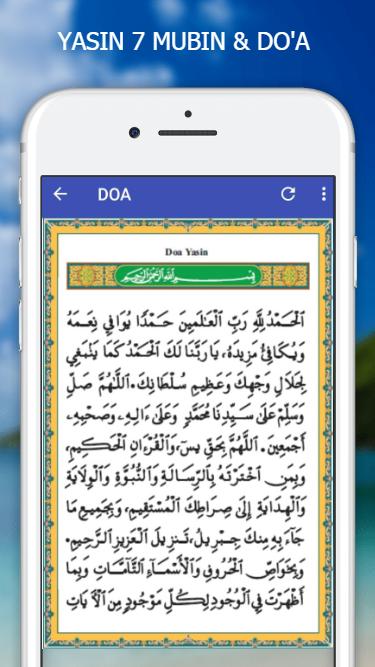 YASIN 7 MUBIN & DO'A
DOA
Doa Yasin
بِسْمِ اللهِ الرَّحْمٰنِ الرَّحِيْمِ
اَلْحَمْدُ لِلّٰهِ رَبِّ الْعَالَمِيْنَ حَمْدًا يُوَافِيْ نِعَمَهُ
وَيُكَافِئُ مَزِيْدَهُ، يَارَبَّنَا لَكَ الْحَمْدُ كَمَا يَنْبَغِيْ
لِجَلَالِ وَجْهِكَ وَعَظِيْمِ سُلْطَانِكَ. اَللّٰهُمَّ صَلِّ
وَسَلِّمْ عَلَى سَيِّدِنَا مُحَمَّدٍ، وَعَلَى ءَالِهِ، وَصَحْبِهِ،
أَجْمَعِيْنَ. اَللّٰهُمَّ بِحَقِّ يسٓ، وَالْقُرْءَانِ الْحَكِيْمِ،
وَبِمَنِ اخْتَرْتَهُ بِالرِّسَالَةِ وَالنُّبُوَّةِ وَالْوِلَايَةِ
وَالْهِدَايَةِ إِلَى صِرَاطِكَ الْمُسْتَقِيْمِ، وَبِجَمِيْعِ مَا
جَآءَ بِهِ مِنْكَ جِبْرِيْلُ، تَنْزِيْلَ الْعَزِيْزِ الرَّحِيْمِ.
وَبِخَوَاصِّ الْحُرُوْفِ وَالْأَسْمَآءِ التَّآمَّاتِ وَبِمَا
أَظْهَرْتَ فِي الْوُجُوْدِ لِكُلِّ مَوْجُوْدٍ مِنَ الْآيَاتِ